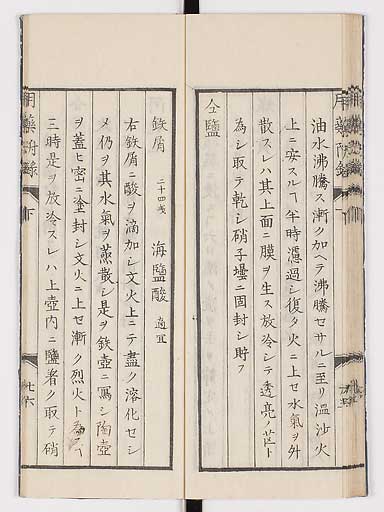 油水沸騰ス漸ク加ヘテ沸騰セサルニ至リ温沙火
上ニ安スルヿ半時濾過シ復タ火ニ上セ水氣ヲ外
散スレハ其上面ニ膜ヲ生ス放冷シテ透亮ノ芒ト
為シ取テ乾シ硝子壜ニ固封シ貯フ
仝鹽
鉄屑 二十四戔 海鹽酸 適宜
右鉄屑ニ酸ヲ滴加シ文火上ニテ盡ク溶化セシ
メ仍ヲ其水氣ヲ蒸散シ是ヲ鉄壺ニ写シ陶壺
ヲ蓋ヒ密ニ塗封シ文火ニ上セ漸ク烈火ト為スヿ
三時是ヲ放冷スレハ上壺内ニ鹽著ク取テ硝
用藥附録
下
七六